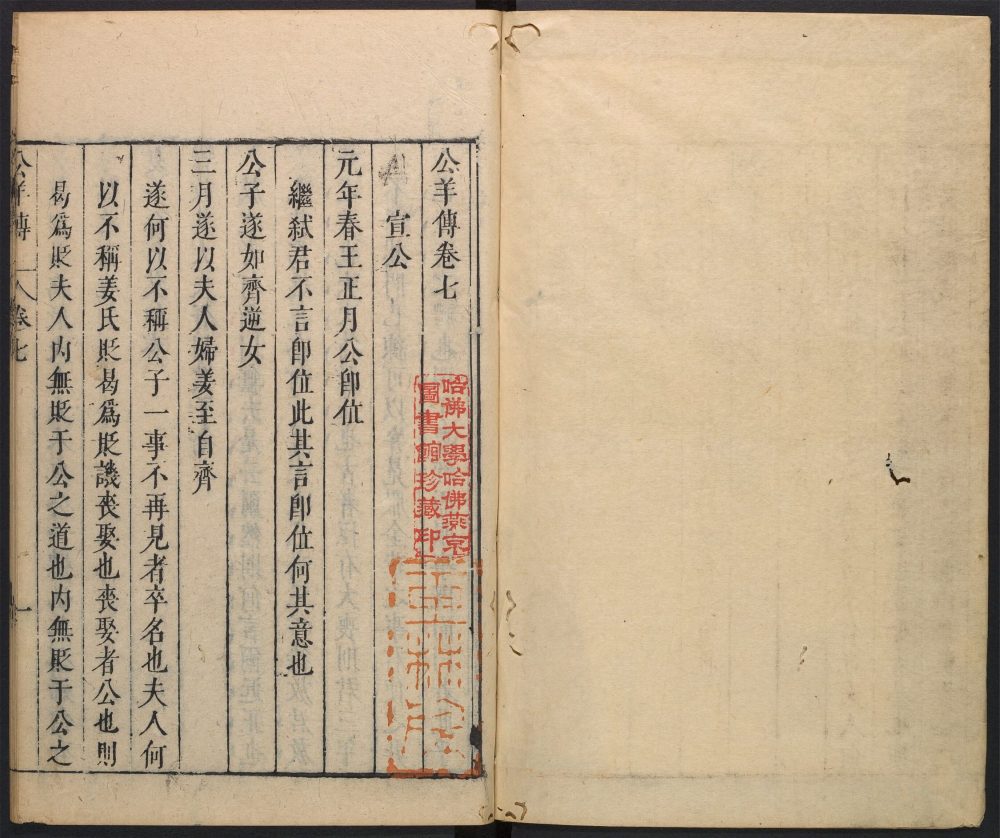 公羊傳卷七
宣公
元年春王正月公卽位
繼弒君不言卽位此其言卽位何其意也
公子遂如齊逆女
三月遂以夫人婦姜至自齊
遂何以不稱公子一事不再見者卒名也夫人何
以不稱姜氏貶曷爲貶譏喪娶也喪娶者公也則
曷爲貶夫人內無貶于公之道也內無貶于公之
公羊傳 卷七 一
哈佛大學哈佛燕京
圖書館珍藏印